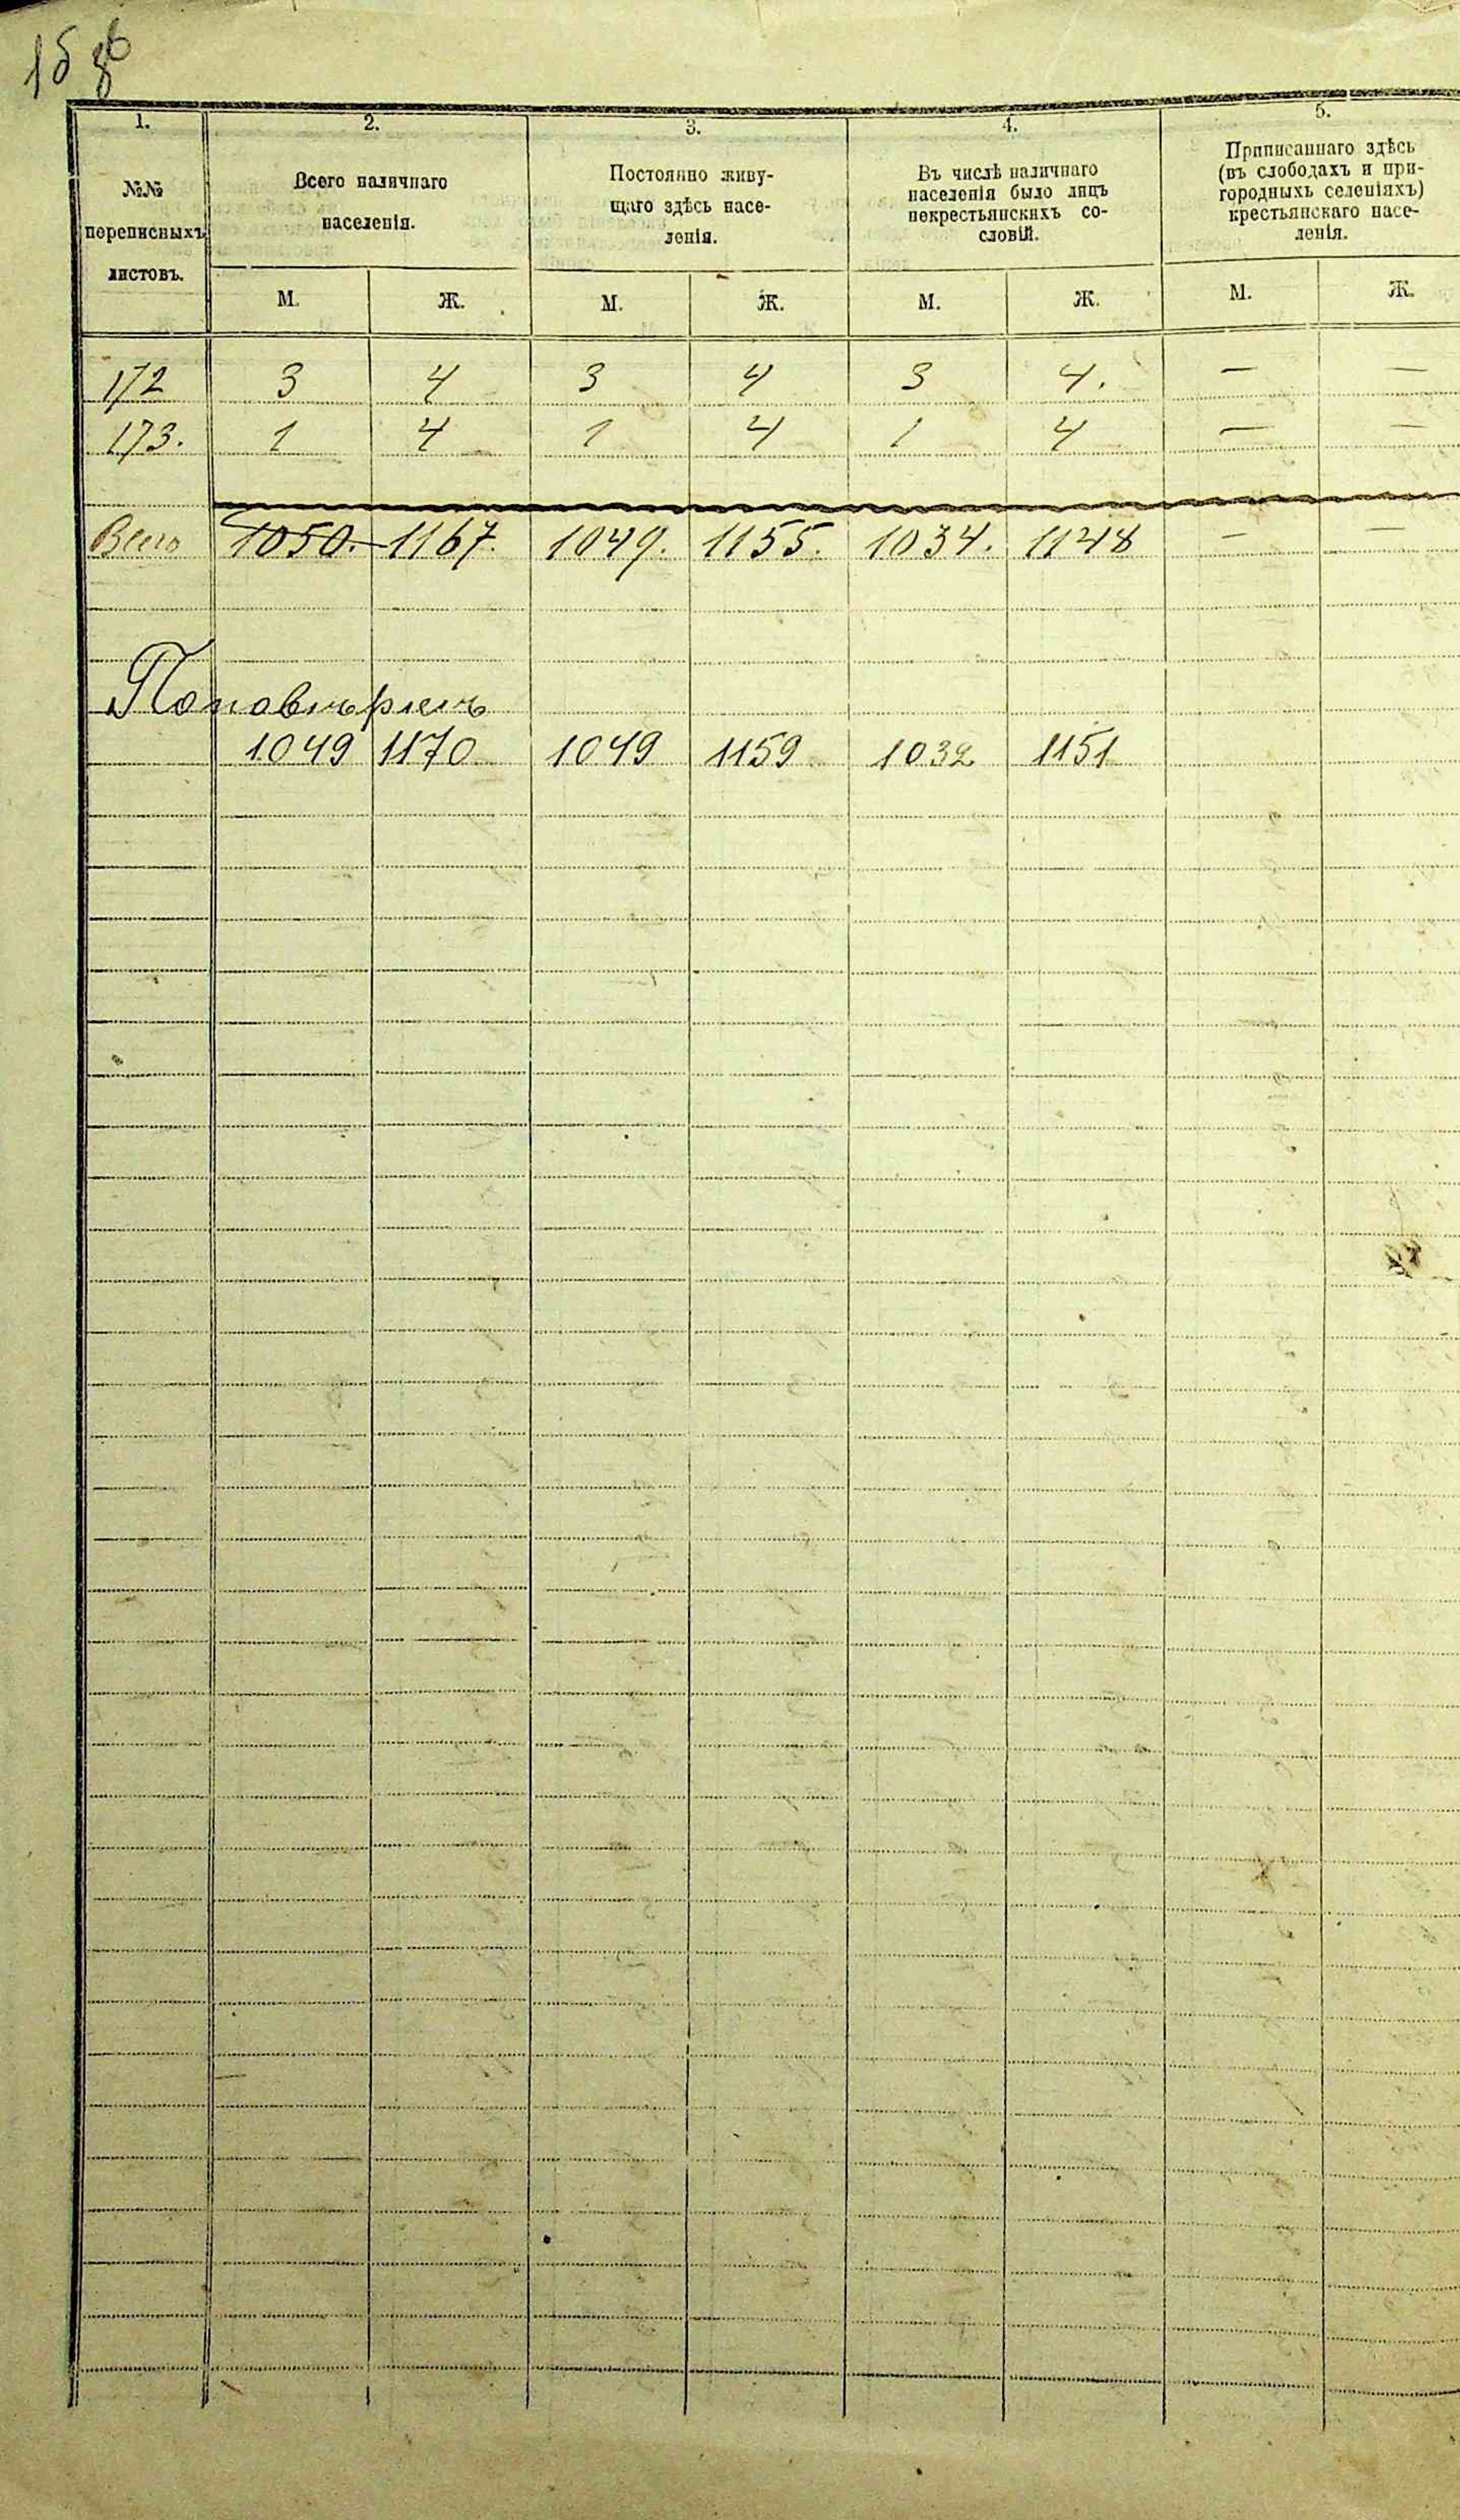 1. 2. 3. 4. 5.
№№
переписныхъ
листовъ.
Всего наличнаго
населенія.
М. Ж.
Постоянно живу-
щаго здѣсь насе-
ленія.
М. Ж.
Въ числѣ наличнаго
населенія было лицъ
некрестьянскихъ со-
словій.
М. Ж.
Приписаннаго здѣсь
(въ слободахъ и при-
городныхъ селеніяхъ)
крестьянскаго насе-
ленія.
М. Ж.
172 3 4 3 4 3 4. — —
173. 1 4 1 4 1 4 — —
Всего 1050.- 1167. 1049. 1155. 1034. 1148 — —
По повѣркѣ
1049 1170 1049 1159 1032 1151